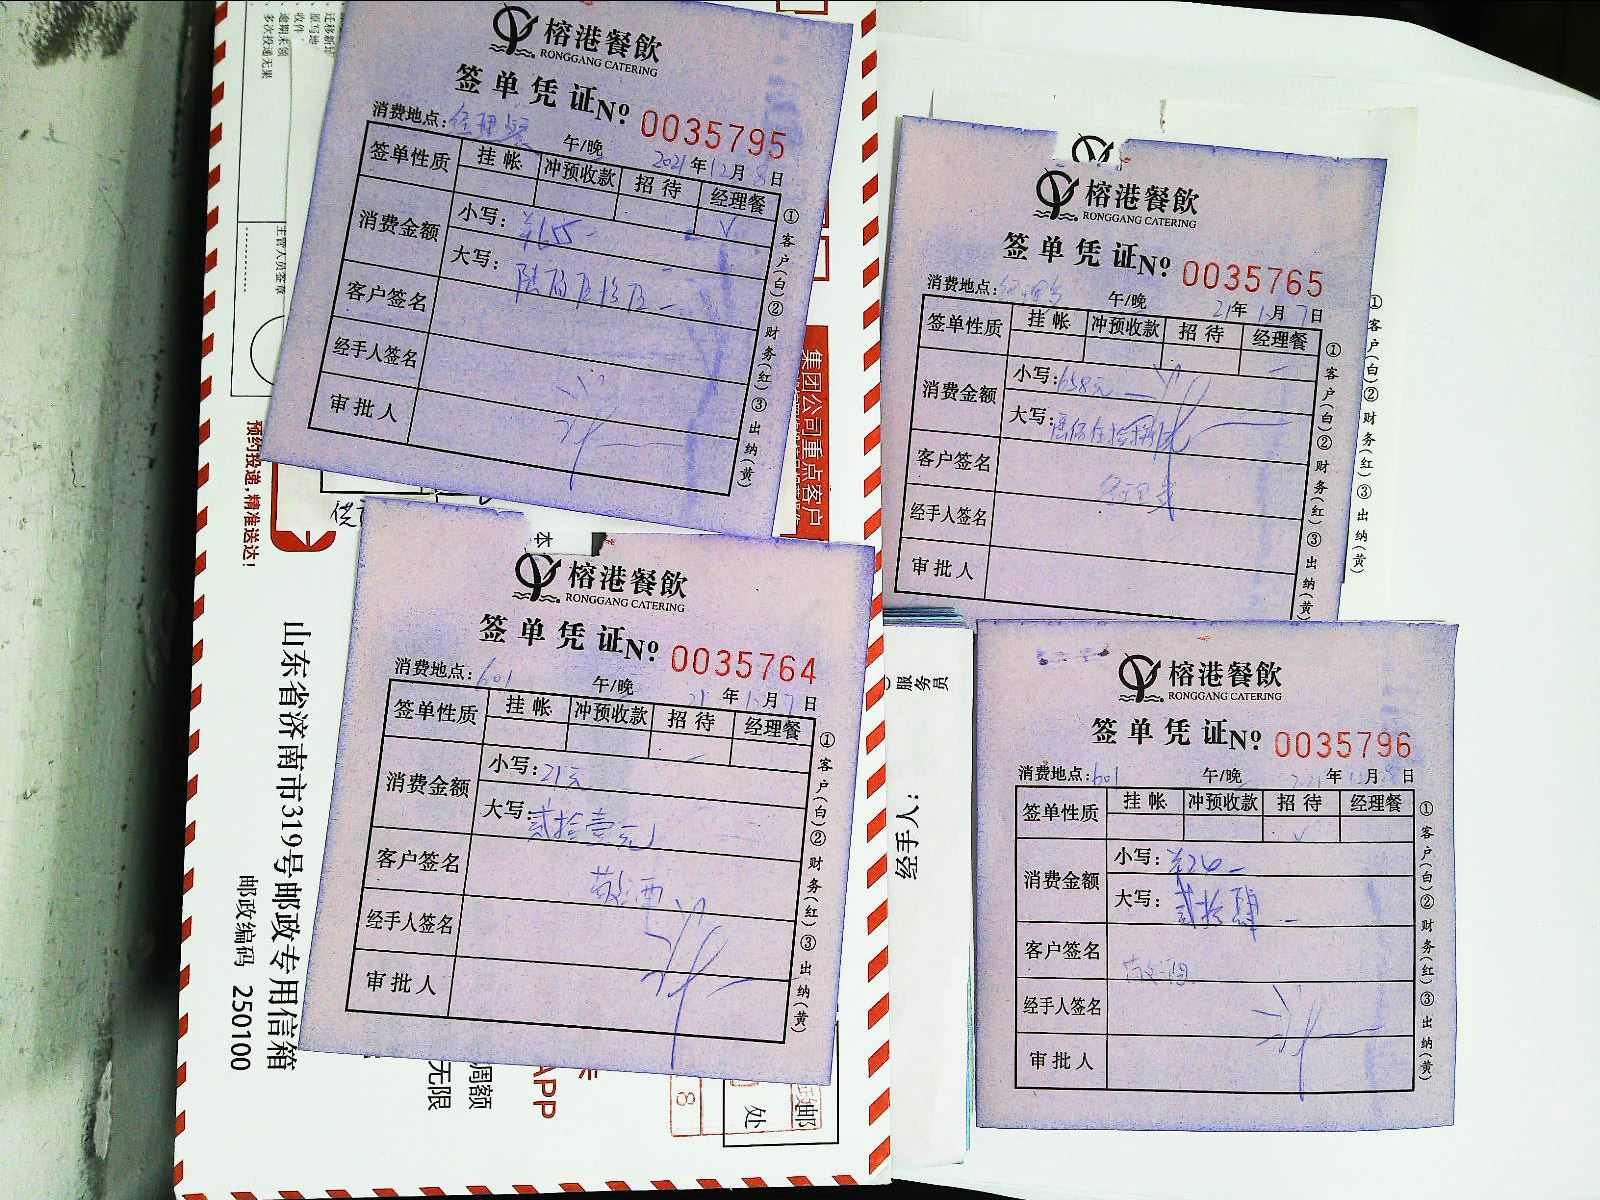 榕港餐飲
RONGGANG CATERING
签单凭证№ 0035795
消费地点：经理餐 午/晚 2021年12月8日
签单性质 挂帐 冲预收款 招待 经理餐
√
消费金额 小写：¥655-
大写：陆佰伍拾伍
客户签名
经手人签名
审批人
①客户(白)②财务(红)③出纳(黄)
榕港餐飲
RONGGANG CATERING
签单凭证№ 0035765
消费地点： 午/晚 21年12月7日
签单性质 挂帐 冲预收款 招待 经理餐
消费金额 小写：658元
大写：
客户签名 经理餐
经手人签名
审批人
①客户(白)②财务(红)③出纳(黄)
①客户(白)②财务(红)③出纳(黄)
榕港餐飲
RONGGANG CATERING
签单凭证№ 0035764
消费地点：601 午/晚 21年12月7日
签单性质 挂帐 冲预收款 招待 经理餐
消费金额 小写：21元
大写：贰拾壹元
客户签名 敬酒
经手人签名
审批人
①客户(白)②财务(红)③出纳(黄)
榕港餐飲
RONGGANG CATERING
签单凭证№ 0035796
消费地点：601 午/晚 2021年12月8日
签单性质 挂帐 冲预收款 招待 经理餐
√
消费金额 小写：
大写：
客户签名 敬酒
经手人签名
审批人
①客户(白)②财务(红)③出纳(黄)
多次投递无果
逾期未领
收件
主管人员签章
预约投递,精准送达!
集团公司重点客户
山东省济南市319号邮政专用信箱
邮政编码 250100
服务员
经手人：
本
APP
无限
周额
处
邮
8